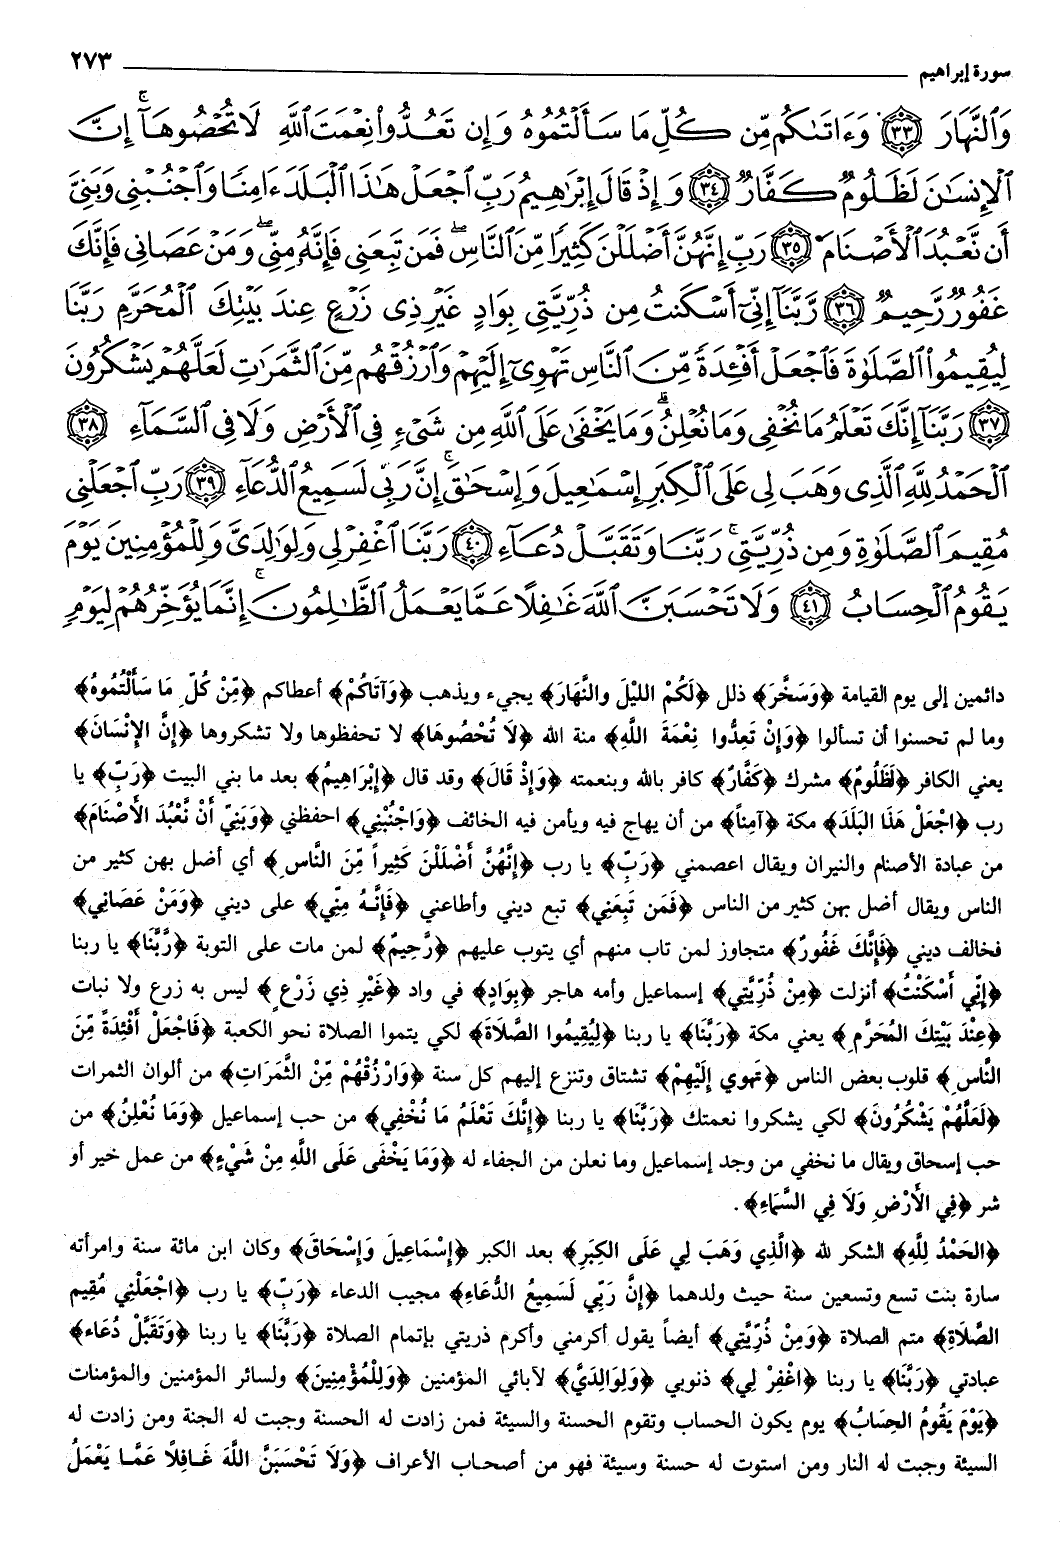 سورة إبراهيم ٢٧٣
وَٱلنَّهَارَ ﴿٣٣﴾ وَءَاتَىٰكُم مِّن كُلِّ مَا سَأَلْتُمُوهُ وَإِن تَعُدُّوا۟ نِعْمَتَ ٱللَّهِ لَا تُحْصُوهَآ ۗ إِنَّ
ٱلْإِنسَٰنَ لَظَلُومٌ كَفَّارٌ ﴿٣٤﴾ وَإِذْ قَالَ إِبْرَٰهِيمُ رَبِّ ٱجْعَلْ هَٰذَا ٱلْبَلَدَ ءَامِنًا وَٱجْنُبْنِى وَبَنِىَّ
أَن نَّعْبُدَ ٱلْأَصْنَامَ ﴿٣٥﴾ رَبِّ إِنَّهُنَّ أَضْلَلْنَ كَثِيرًا مِّنَ ٱلنَّاسِ ۖ فَمَن تَبِعَنِى فَإِنَّهُۥ مِنِّى ۖ وَمَنْ عَصَانِى فَإِنَّكَ
غَفُورٌ رَّحِيمٌ ﴿٣٦﴾ رَّبَّنَآ إِنِّىٓ أَسْكَنتُ مِن ذُرِّيَّتِى بِوَادٍ غَيْرِ ذِى زَرْعٍ عِندَ بَيْتِكَ ٱلْمُحَرَّمِ رَبَّنَا
لِيُقِيمُوا۟ ٱلصَّلَوٰةَ فَٱجْعَلْ أَفْـِٔدَةً مِّنَ ٱلنَّاسِ تَهْوِىٓ إِلَيْهِمْ وَٱرْزُقْهُم مِّنَ ٱلثَّمَرَٰتِ لَعَلَّهُمْ يَشْكُرُونَ
﴿٣٧﴾ رَبَّنَآ إِنَّكَ تَعْلَمُ مَا نُخْفِى وَمَا نُعْلِنُ ۗ وَمَا يَخْفَىٰ عَلَى ٱللَّهِ مِن شَىْءٍ فِى ٱلْأَرْضِ وَلَا فِى ٱلسَّمَآءِ ﴿٣٨﴾
ٱلْحَمْدُ لِلَّهِ ٱلَّذِى وَهَبَ لِى عَلَى ٱلْكِبَرِ إِسْمَٰعِيلَ وَإِسْحَٰقَ ۚ إِنَّ رَبِّى لَسَمِيعُ ٱلدُّعَآءِ ﴿٣٩﴾ رَبِّ ٱجْعَلْنِى
مُقِيمَ ٱلصَّلَوٰةِ وَمِن ذُرِّيَّتِى ۚ رَبَّنَا وَتَقَبَّلْ دُعَآءِ ﴿٤٠﴾ رَبَّنَا ٱغْفِرْ لِى وَلِوَٰلِدَىَّ وَلِلْمُؤْمِنِينَ يَوْمَ
يَقُومُ ٱلْحِسَابُ ﴿٤١﴾ وَلَا تَحْسَبَنَّ ٱللَّهَ غَٰفِلًا عَمَّا يَعْمَلُ ٱلظَّٰلِمُونَ ۚ إِنَّمَا يُؤَخِّرُهُمْ لِيَوْمٍ
دائمين إلى يوم القيامة ﴿وَسَخَّرَ﴾ ذلل ﴿لَكُمْ الليْلَ والنَّهَارَ﴾ يجيء ويذهب ﴿وَآتَاكُمْ﴾ أعطاكم ﴿مِّنْ كُلِّ مَا سَأَلْتُمُوهُ﴾
وما لم تحسنوا أن تسألوا ﴿وَإِنْ تَعِدُّوا نِعْمَةَ اللَّهِ﴾ منة الله ﴿لَا تُحْصُوهَا﴾ لا تحفظوها ولا تشكروها ﴿إِنَّ الإِنْسَانَ﴾
يعني الكافر ﴿لَظَلُومٌ﴾ مشرك ﴿كَفَّارٌ﴾ كافر بالله وبنعمته ﴿وَإِذْ قَالَ﴾ وقد قال ﴿إِبْرَاهِيمُ﴾ بعد ما بني البيت ﴿رَبِّ﴾ يا
رب ﴿اجْعَلْ هَذَا البَلَدَ﴾ مكة ﴿آمِناً﴾ من أن يهاج فيه ويأمن فيه الخائف ﴿وَاجْنُبْنِي﴾ احفظني ﴿وَبَنِيَّ أَنْ نَّعْبُدَ الأَصْنَامَ﴾
من عبادة الأصنام والنيران ويقال اعصمني ﴿رَبِّ﴾ يا رب ﴿إِنَّهُنَّ أَضْلَلْنَ كَثِيراً مِّنَ النَّاسِ﴾ أي أضل بهن كثير من
الناس ويقال أضل بهن كثير من الناس ﴿فَمَن تَبِعَنِي﴾ تبع ديني وأطاعني ﴿فَإِنَّهُ مِنِّي﴾ على ديني ﴿وَمَنْ عَصَانِي﴾
فخالف ديني ﴿فَإِنَّكَ غَفُورٌ﴾ متجاوز لمن تاب منهم أي يتوب عليهم ﴿رَّحِيمٌ﴾ لمن مات على التوبة ﴿رَّبَّنَا﴾ يا ربنا
﴿إِنِّي أَسْكَنْتُ﴾ أنزلت ﴿مِنْ ذُرِّيَّتِي﴾ إسماعيل وأمه هاجر ﴿بِوَادٍ﴾ في واد ﴿غَيْرِ ذِي زَرْعٍ﴾ ليس به زرع ولا نبات
﴿عِنْدَ بَيْتِكَ المُحَرَّمِ﴾ يعني مكة ﴿رَبَّنَا﴾ يا ربنا ﴿لِيُقِيمُوا الصَّلَاةَ﴾ لكي يتموا الصلاة نحو الكعبة ﴿فَاجْعَلْ أَفْئِدَةً مِّنَ
النَّاسِ﴾ قلوب بعض الناس ﴿تَهوِي إِلَيْهِمْ﴾ تشتاق وتنزع إليهم كل سنة ﴿وَارْزُقْهُمْ مِّنْ الثَّمَرَاتِ﴾ من ألوان الثمرات
﴿لَعَلَّهُمْ يَشْكُرُونَ﴾ لكي يشكروا نعمتك ﴿رَبَّنَا﴾ يا ربنا ﴿إِنَّكَ تَعْلَمُ مَا نُخْفِي﴾ من حب إسماعيل ﴿وَمَا نُعْلِنُ﴾ من
حب إسحاق ويقال ما نخفي من وجد إسماعيل وما نعلن من الجفاء له ﴿وَمَا يَخْفَى عَلَى اللَّهِ مِنْ شَيْءٍ﴾ من عمل خير أو
شر ﴿فِي الأَرْضِ وَلَا فِي السَّمَاءِ﴾.
﴿الحَمْدُ لِلَّهِ﴾ الشكر لله ﴿الَّذِي وَهَبَ لِي عَلَى الكِبَرِ﴾ بعد الكبر ﴿إِسْمَاعِيلَ وَإِسْحَاقَ﴾ وكان ابن مائة سنة وامرأته
سارة بنت تسع وتسعين سنة حيث ولدهما ﴿إِنَّ رَبِّي لَسَمِيعُ الدُّعَاءِ﴾ مجيب الدعاء ﴿رَبِّ﴾ يا رب ﴿اجْعَلْنِي مُقِيم
الصَّلَاةِ﴾ متم الصلاة ﴿وَمِنْ ذُرِّيَّتِي﴾ أيضاً يقول أكرمني وأكرم ذريتي بإتمام الصلاة ﴿رَبَّنَا﴾ يا ربنا ﴿وَتَقَبَّلْ دُعَاء﴾
عبادتي ﴿رَبَّنَا﴾ يا ربنا ﴿اغْفِرْ لِي﴾ ذنوبي ﴿وَلِوَالِدَيَّ﴾ لآبائي المؤمنين ﴿وَلِلْمُؤْمِنِينَ﴾ ولسائر المؤمنين والمؤمنات
﴿يَوْمَ يَقُومُ الحِسَابُ﴾ يوم يكون الحساب وتقوم الحسنة والسيئة فمن زادت له الحسنة وجبت له الجنة ومن زادت له
السيئة وجبت له النار ومن استوت له حسنة وسيئة فهو من أصحاب الأعراف ﴿وَلَا تَحْسَبَنَّ اللَّهَ غَافِلاً عَمَّا يَعْمَلُ